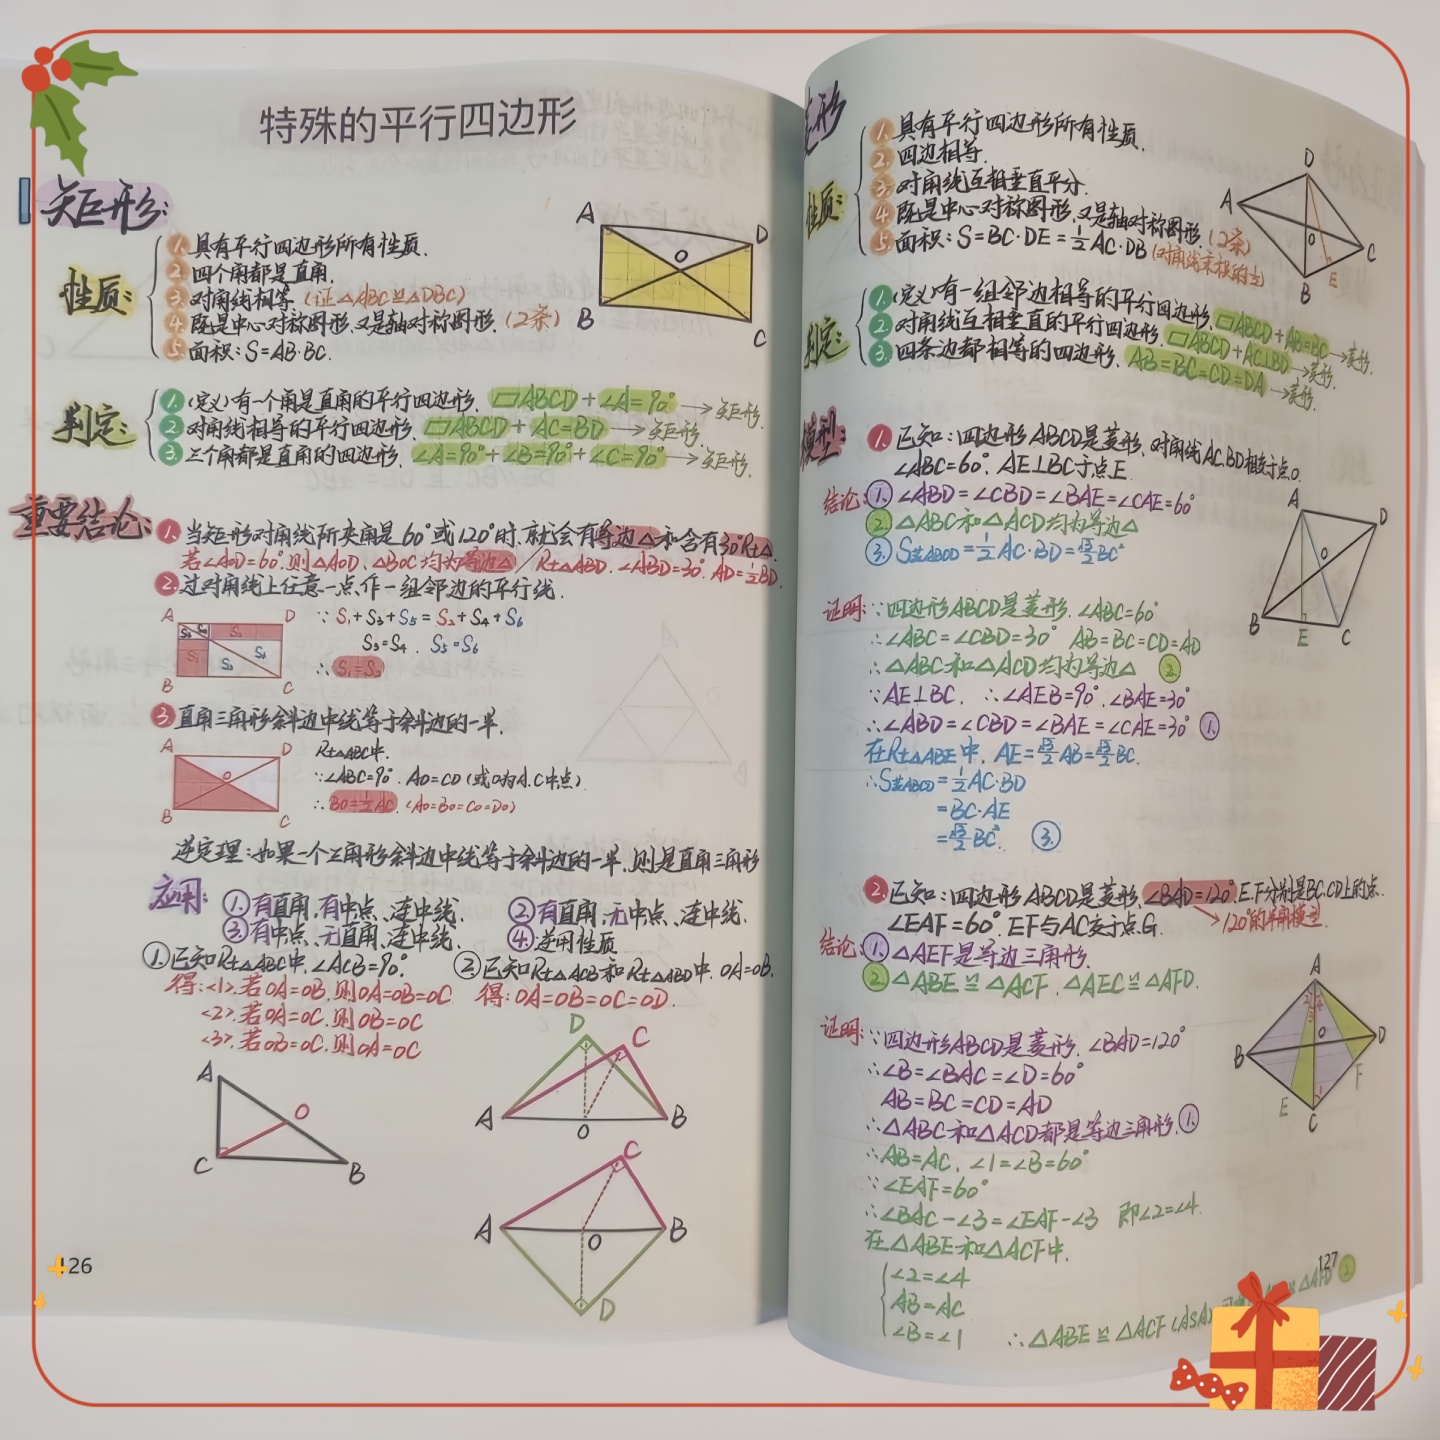 特殊的平行四边形
矩形:
性质:
1. 具有平行四边形所有性质.
2. 四个角都是直角.
3. 对角线相等. (证△ABC≌△DBC)
4. 既是中心对称图形,又是轴对称图形. (2条)
5. 面积: S=AB·BC.
A
D
O
B
C
判定:
1. (定义)有一个角是直角的平行四边形. ▱ABCD+∠A=90° → 矩形.
2. 对角线相等的平行四边形. ▱ABCD+AC=BD → 矩形.
3. 三个角都是直角的四边形. ∠A=90°+∠B=90°+∠C=90° → 矩形.
重要结论:
1. 当矩形对角线所夹角是60°或120°时,就会有等边△和含有30°Rt△.
若∠AOD=60°.则△AOD、△BOC均为等边△/Rt△ABD.∠ABD=30°.AD=½BD.
2. 过对角线上任意一点,作一组邻边的平行线.
A D
S₁ S₂ S₃ S₄ S₅ S₆
B C
∵ S₁+S₃+S₅=S₂+S₄+S₆
S₃=S₄. S₅=S₆
∴ S₁=S₂
3 直角三角形斜边中线等于斜边的一半.
A D
O
B C
Rt△ABC中.
∵∠ABC=90°. AO=CO (或O为A.C中点)
∴ BO=½AC. (AO=BO=CO=DO)
逆定理:如果一个三角形斜边中线等于斜边的一半,则是直角三角形
应用:
①.有直角,有中点、连中线.
②.有直角,无中点、连中线.
③.有中点、无直角、连中线.
④.逆用性质
①.已知Rt△ABC中.∠ACB=90°.
得:<1>.若OA=OB.则OA=OB=OC
<2>.若OA=OC.则OB=OC
<3>.若OB=OC.则OA=OC
②.已知Rt△ACB和Rt△ABD中.OA=OB.
得: OA=OB=OC=OD.
A
O
C
B
D
C
A
O
B
C
A
O
B
D
126
菱形
性质:
1. 具有平行四边形所有性质.
2. 四边相等.
3. 对角线互相垂直平分.
4. 既是中心对称图形,又是轴对称图形. (2条)
5. 面积: S=BC·DE=½AC·DB (对角线乘积的½)
D
A
O
C
E
B
判定:
1. (定义)有一组邻边相等的平行四边形. ▱ABCD+AB=BC → 菱形.
2. 对角线互相垂直的平行四边形. ▱ABCD+AC⊥BD → 菱形.
3. 四条边都相等的四边形. AB=BC=CD=DA → 菱形.
模型:
1. 已知:四边形ABCD是菱形.对角线AC.BD相交于点O.
∠ABC=60°. AE⊥BC于点E.
结论: ①. ∠ABD=∠CBD=∠BAE=∠CAE=60°
②. △ABC和△ACD均为等边△
③. S菱ABCD=½AC·BD=√3/2BC²
A
D
O
B
E
C
证明: ∵四边形ABCD是菱形.∠ABC=60°
∴∠ABC=∠CBD=30° AB=BC=CD=AD
∴△ABC和△ACD均为等边△ ②.
∵AE⊥BC. ∴∠AEB=90°.∠BAE=30°
∴∠ABD=∠CBD=∠BAE=∠CAE=30° ①.
在Rt△ABE中. AE=√3/2AB=√3/2BC.
∴S菱ABCD=½AC·BD
=BC·AE
=√3/2BC². ③.
2. 已知:四边形ABCD是菱形.∠BAD=120°.E.F分别是BC.CD上的点.
∠EAF=60°.EF与AC交于点G. → 120°的半角模型.
结论: ①. △AEF是等边三角形.
②. △ABE≌△ACF.△AEC≌△AFD.
A
2 3 4
O
B
D
F
1
E
C
证明: ∵四边形ABCD是菱形.∠BAD=120°
∴∠B=∠BAC=∠D=60°
AB=BC=CD=AD
∴△ABC和△ACD都是等边三角形. ①.
∴AB=AC.∠1=∠B=60°
∵∠EAF=60°
∴∠BAC-∠3=∠EAF-∠3 即∠2=∠4.
在△ABE和△ACF中.
∠2=∠4
AB=AC
∠B=∠1
∴△ABE≌△ACF(ASA) △AFD ②
127